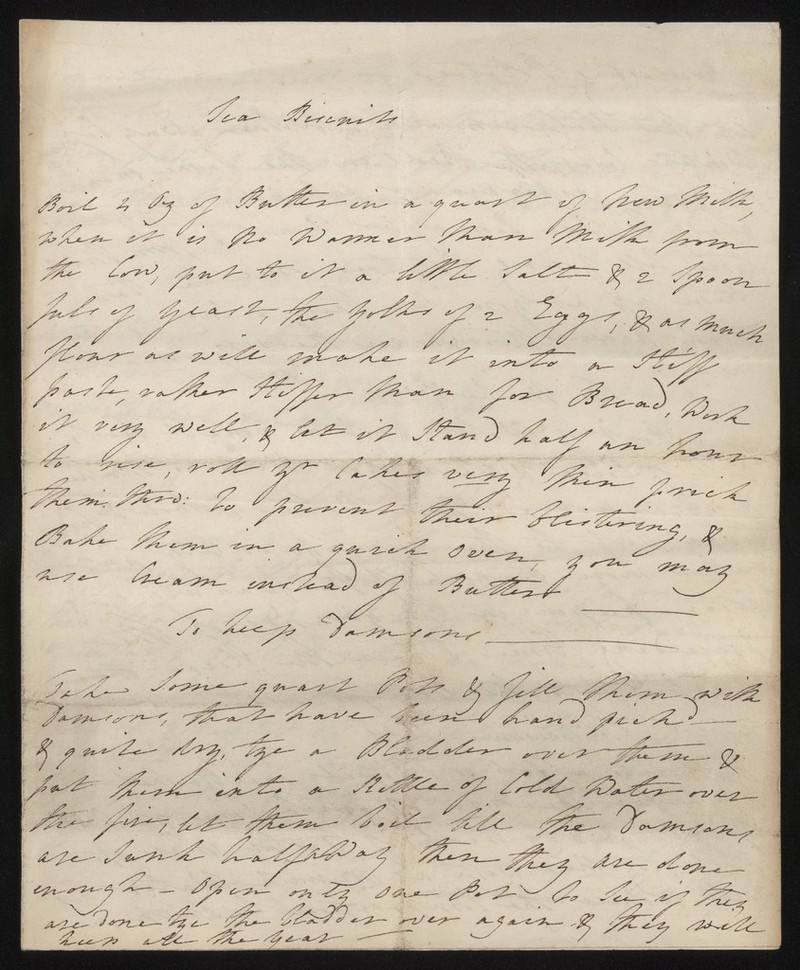 Sea Biscuits
Boil 2 Oz of Butter in a quart of New Milk,
when it is No Warmer than Milk from
the Cow, put to it a little Salt & 2 Spoon
fuls of yeast, the yolks of 2 Eggs, & as much
flour as will make it into a Stiff
paste, rather Stiffer than for Bread, Work
it very well, & let it Stand half an hour
to rise, roll yr Cakes very thin prick
them thro: to prevent their blistering, &
Bake them in a quick Oven, you may
use Cream instead of Butter
To keep Damsons
Take Some quart Pots & fill them with
Damsons, that have been hand pick'd
& quite dry, tye a Bladder over them &
put them into a Kettle of Cold Water over
the fire, let them boil till the Damsons
are Sunk halfaWay then they are done
enough - Open only one Pot to See if they
are done tye the bladder over again & they will
keep all the Year